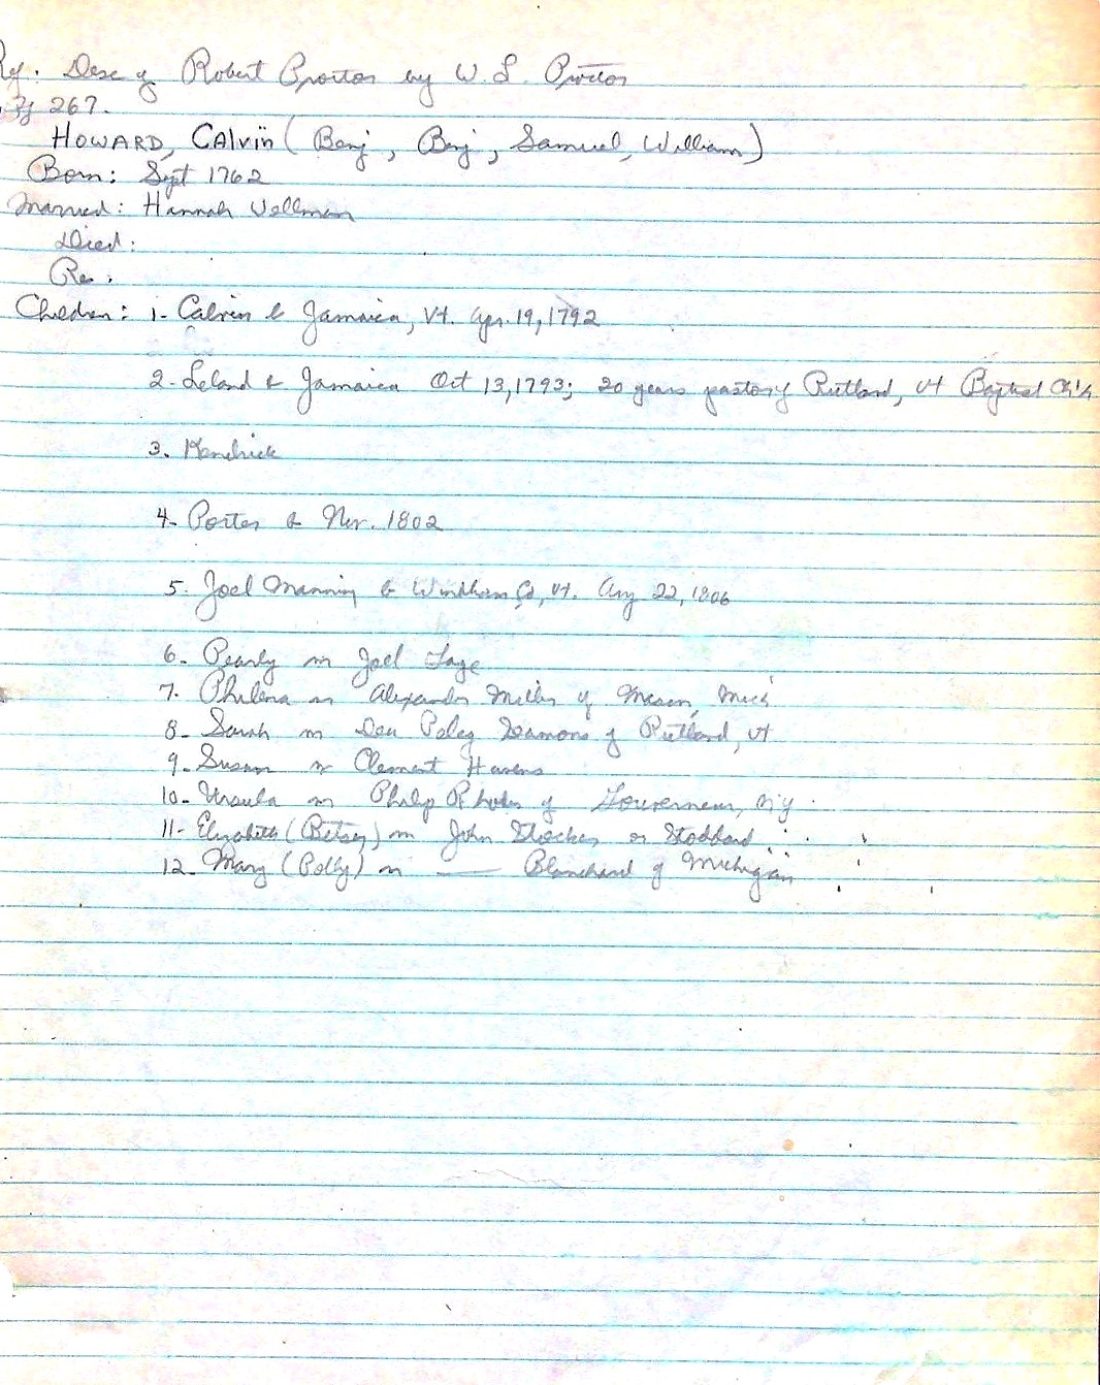 Ref: Desc of Robert Proctor by W. L. Proctor
Pg 267.
HOWARD, CAlvin (Benj, Benj, Samuel, William)
Born: Sept 1762
Married: Hannah Wellman
Died:
Re:
Children: 1- Calvin b Jamaica, Vt. Apr. 19, 1792
2- Leland b Jamaica Oct 13, 1793; 20 years pastor of Rutland, Vt Baptist Ch'h
3. Kendrick
4- Porter b Nov. 1802
5. Joel Manning b Windham Co, Vt. Aug 22, 1806
6- Pearly m Joel Gage
7. Philena m Alexander Miller of Mason, Mich
8- Sarah m Dea Peleg Damons of Rutland, Vt
9- Susan m Clement Havens
10- Ursula m Philip Rhodes of Gouverneur, NY
11- Elizabeth (Betsey) m John Stocker or Stoddard
12- Mary (Polly) m —— Blanchard of Michigan